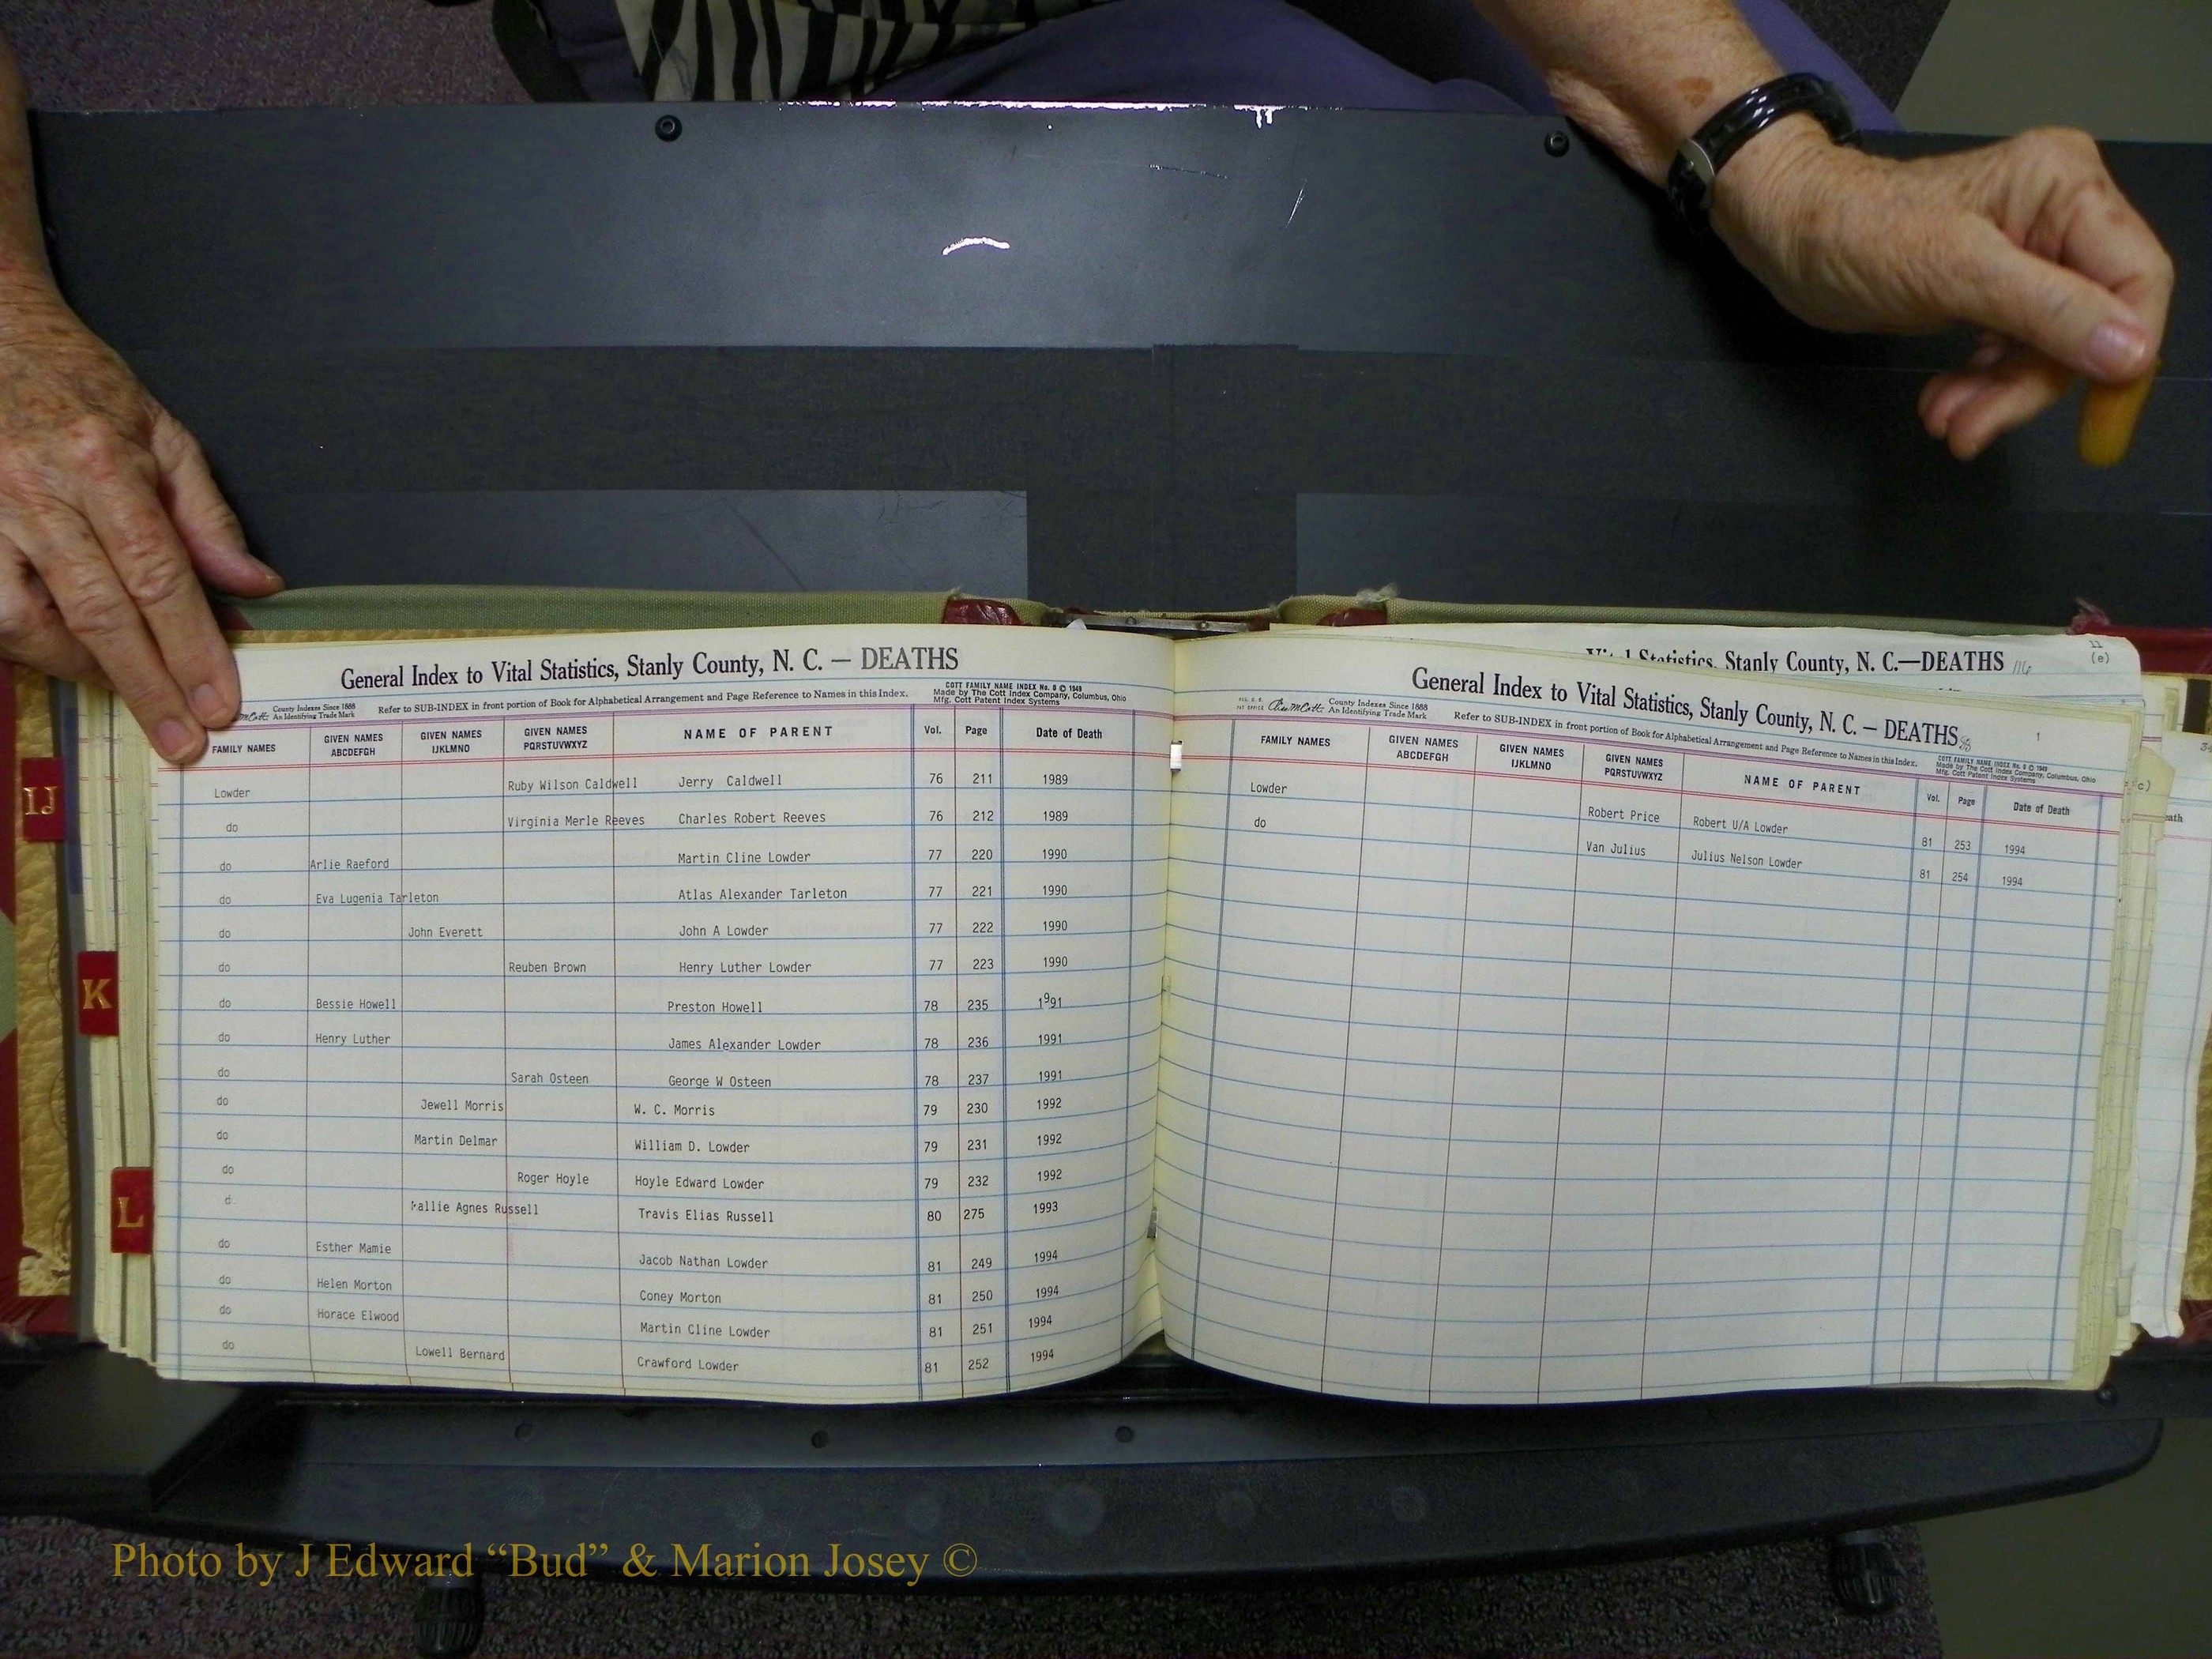 General Index to Vital Statistics, Stanly County, N. C. — DEATHS
County Indexes Since 1888
An Identifying Trade Mark
Refer to SUB-INDEX in front portion of Book for Alphabetical Arrangement and Page Reference to Names in this Index.
COTT FAMILY NAME INDEX No. 8 © 1949
Made by The Cott Index Company, Columbus, Ohio
Mfg. Cott Patent Index Systems
FAMILY NAMES GIVEN NAMES ABCDEFGH GIVEN NAMES IJKLMNO GIVEN NAMES PQRSTUVWXYZ NAME OF PARENT Vol. Page Date of Death
Lowder Ruby Wilson Caldwell Jerry Caldwell 76 211 1989
do Virginia Merle Reeves Charles Robert Reeves 76 212 1989
do Arlie Raeford Martin Cline Lowder 77 220 1990
do Eva Lugenia Tarleton Atlas Alexander Tarleton 77 221 1990
do John Everett John A Lowder 77 222 1990
do Reuben Brown Henry Luther Lowder 77 223 1990
do Bessie Howell Preston Howell 78 235 1991
do Henry Luther James Alexander Lowder 78 236 1991
do Sarah Osteen George W Osteen 78 237 1991
do Jewell Morris W. C. Morris 79 230 1992
do Martin Delmar William D. Lowder 79 231 1992
do Roger Hoyle Hoyle Edward Lowder 79 232 1992
d Agnes Russell Travis Elias Russell 80 275 1993
do Esther Mamie Jacob Nathan Lowder 81 249 1994
do Helen Morton Coney Morton 81 250 1994
do Horace Elwood Martin Cline Lowder 81 251 1994
do Lowell Bernard Crawford Lowder 81 252 1994
IJ
K
L
Vital Statistics, Stanly County, N. C.—DEATHS 116
(e)
General Index to Vital Statistics, Stanly County, N. C. — DEATHS
County Indexes Since 1888
An Identifying Trade Mark
Refer to SUB-INDEX in front portion of Book for Alphabetical Arrangement and Page Reference to Names in this Index.
COTT FAMILY NAME INDEX No. 8 © 1949
Made by The Cott Index Company, Columbus, Ohio
Mfg. Cott Patent Index Systems
FAMILY NAMES GIVEN NAMES ABCDEFGH GIVEN NAMES IJKLMNO GIVEN NAMES PQRSTUVWXYZ NAME OF PARENT Vol. Page Date of Death
Lowder Robert Price Robert U/A Lowder 81 253 1994
do Van Julius Julius Nelson Lowder 81 254 1994
Photo by J Edward “Bud” & Marion Josey ©